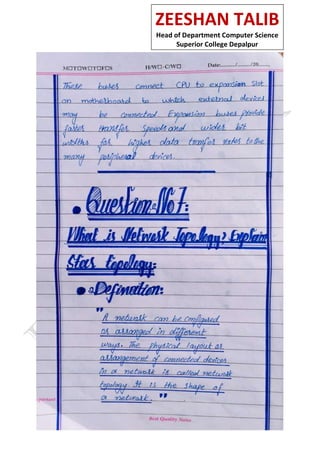 ZEESHAN TALIB
Head of Department Computer Science
Superior College Depalpur
M□T□W□T□F□S H/W□-C/W□ Date:......../......../20........
These buses connect CPU to expansion slot
on motherboard to which external devices
may be connected. Expansion buses provide
faster transfer speeds and wider bit
widths for higher data transfer rates to the
many peripheral devices.
• Question:No 7:
What is Network Topology? Explain
Star topology:
• Defination:
"A network can be configured
or arranged in different
ways. The physical layout or
arrangement of connected devices
in a network is called network
topology. It is the shape of
a network."
Best Quality Notes